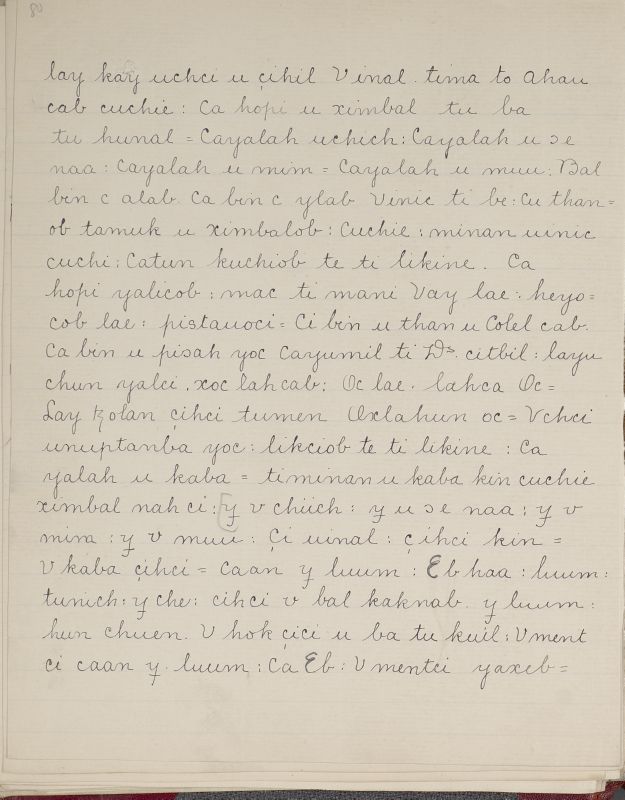 80
lay kay uchci u çihil Vinal. tima to ahau
cab cuchie: Ca hopi u ximbal tu ba
tu hunal = Cayalah uchich: Cayalah u ɔe
naa: Cayalah u mim = Cayalah u muu: Bal
bin c alab. Ca bin c ylab Vinic ti be: Cu than=
ob tamuk u ximbalob: Cuchie: minan uinic
cuchi: Catun kuchiob te ti likine. Ca
hopi yalicob: mac ti mani Vay lae: heyo=
cob lae: pistauoci= Ci bin u than u Colel cab.
Ca bin u pisah yoc Cayumil ti Ds. citbil: layu
chun yalci, xoc lah cab: Oc lae. lahca Oc=
Lay ꜩolan çihci tumen Oxlahun oc= Vchci
unuptanba yoc: likciob te ti likine: Ca
yalah u kaba = timinan u kaba kin cuchie
ximbal nah ci: y v chiich: y u ɔe naa: y v
mim: y v muu: Çi uinal: çihci kin =
V kaba çihci = Caan y luum: Eb haa: luum:
tunich: y che: cihci v bal kaknab. y luum:
hun chuen. V hok çici u ba tu kuil: Vment
ci caan y. luum: Ca Eb: Vmentci yaxeb=